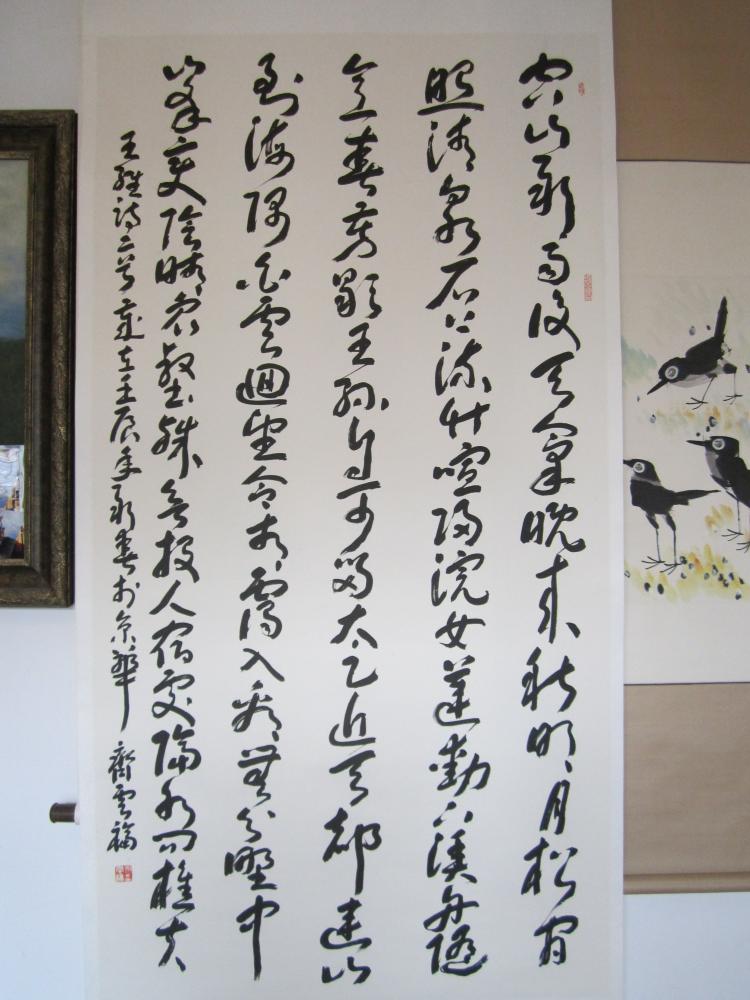 空山新雨後天氣晚來秋明月松間
照清泉石上流竹喧歸浣女蓮動下漁舟隨
意春芳歇王孫自可留太乙近天都連山
到海隅白雲迴望合青靄入看無分野中
峯變陰晴衆壑殊欲投人宿處隔水問樵夫
王維詩二首歲在壬辰年新春於京華 齊雲福